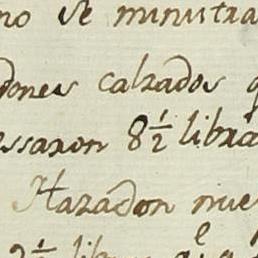 no se minustra
dones calzados q
essaron 8½ libra
Hazadon nue
2½ libra